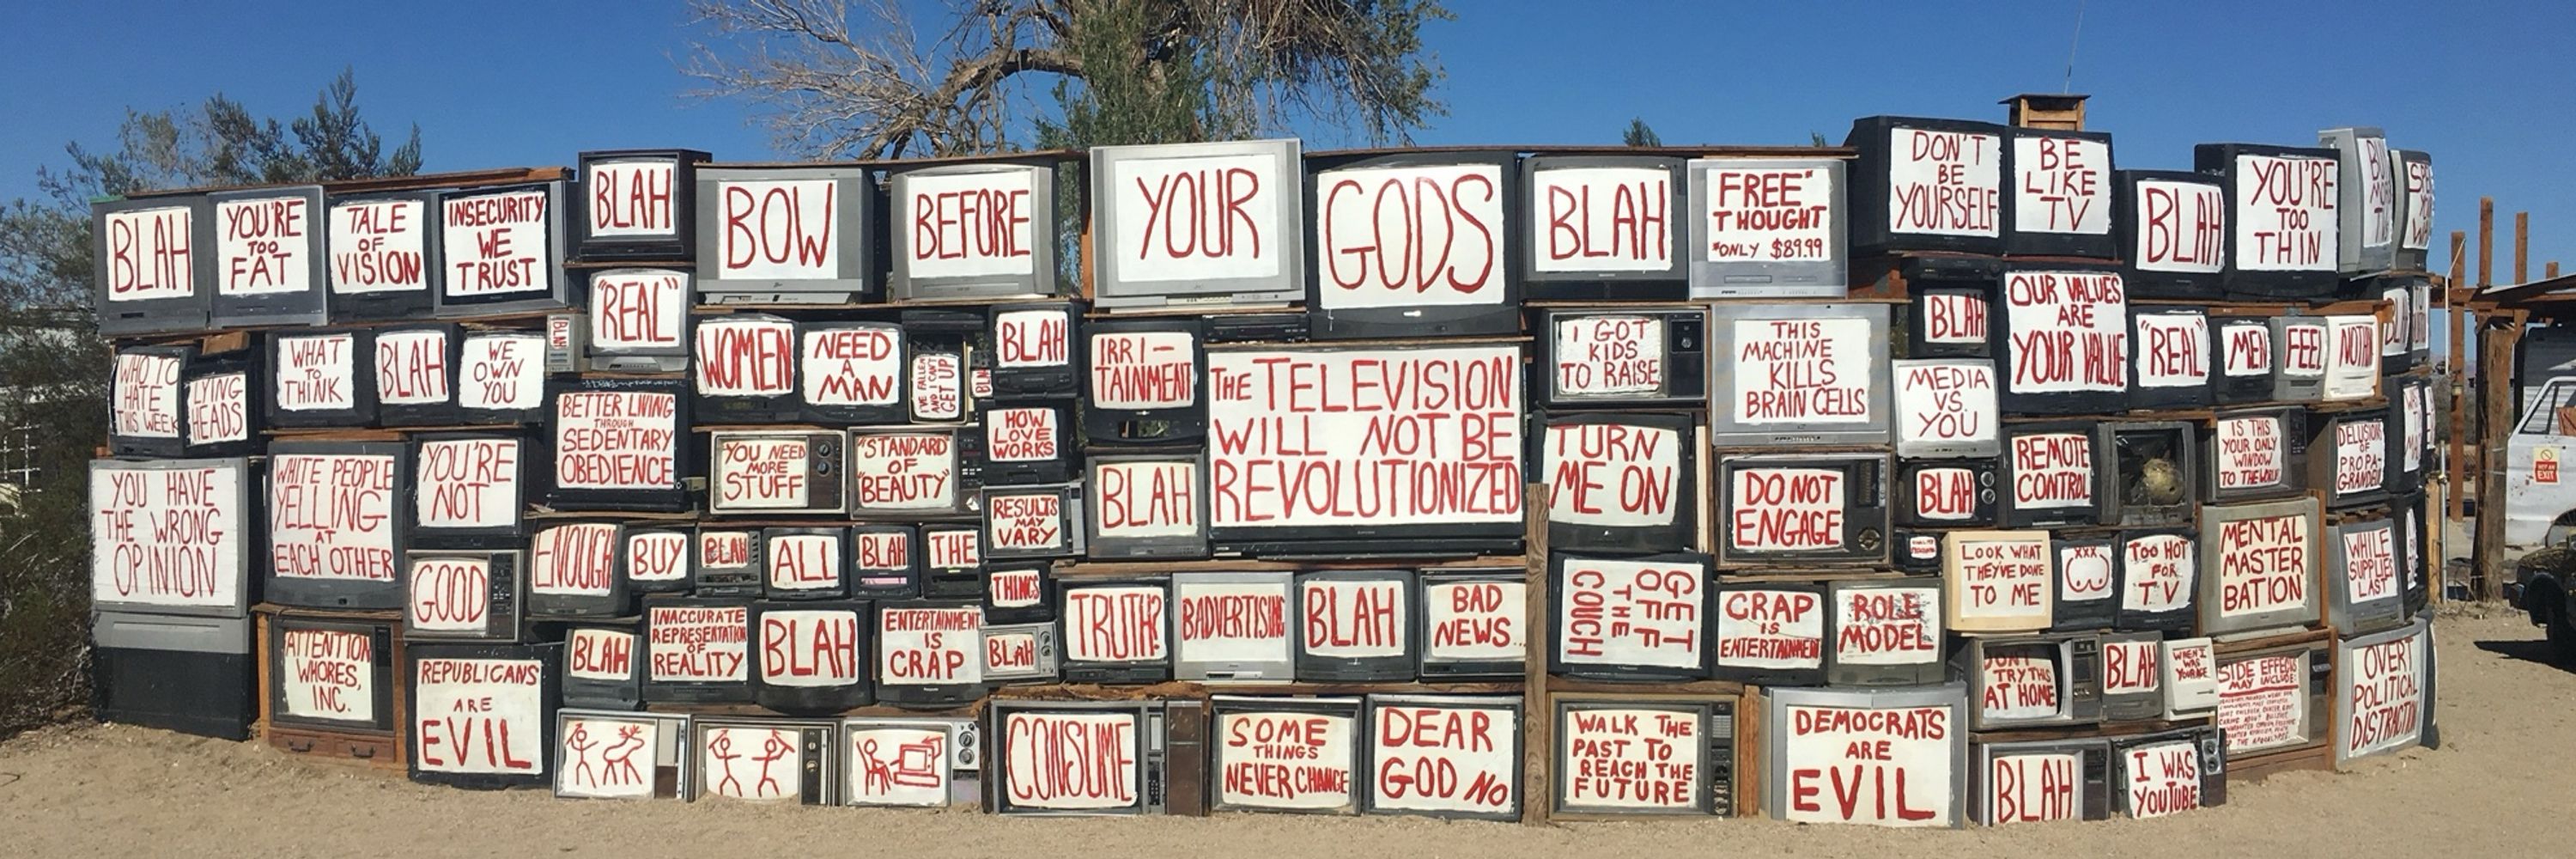 BLAH
YOU'RE
TOO
FAT
TALE
OF
VISION
INSECURITY
WE
TRUST
BLAH
BOW
BEFORE
YOUR
GODS
BLAH
FREE*
THOUGHT
*ONLY $89.99
DON'T
BE
YOURSELF
BE
LIKE
TV
BLAH
YOU'RE
TOO
THIN
WHO TO
HATE
THIS WEEK
LYING
HEADS
WHAT
TO
THINK
BLAH
WE
OWN
YOU
BLAH
"REAL"
WOMEN
NEED
A
MAN
I'VE FALLEN
AND I CAN'T
GET UP
BLAH
IRRI-
TAINMENT
THE TELEVISION
WILL NOT BE
REVOLUTIONIZED
I GOT
KIDS
TO RAISE
THIS
MACHINE
KILLS
BRAIN CELLS
BLAH
OUR VALUES
ARE
YOUR VALUE
"REAL"
MEN
FEEL
BETTER LIVING
THROUGH
SEDENTARY
OBEDIENCE
MEDIA
VS.
YOU
YOU HAVE
THE WRONG
OPINION
WHITE PEOPLE
YELLING
AT
EACH OTHER
YOU'RE
NOT
YOU NEED
MORE
STUFF
"STANDARD
OF
BEAUTY"
HOW
LOVE
WORKS
BLAH
TURN
ME ON
DO NOT
ENGAGE
BLAH
REMOTE
CONTROL
IS THIS
YOUR ONLY
WINDOW
TO THE WORLD?
DELUSIONS
OF
PROPA-
GRANDEUR
GOOD
ENOUGH
BUY
BLAH
ALL
BLAH
THE
RESULTS
MAY
VARY
THINGS
LOOK WHAT
THEY'VE DONE
TO ME
XXX
TOO HOT
FOR
TV
MENTAL
MASTER
BATION
WHILE
SUPPLIES
LAST
ATTENTION
WHORES,
INC.
REPUBLICANS
ARE
EVIL
BLAH
INACCURATE
REPRESENTATION
OF
REALITY
BLAH
ENTERTAINMENT
IS
CRAP
BLAH
TRUTH?
BADVERTISING
BLAH
BAD
NEWS...
GET
OFF
THE
COUCH
CRAP
IS
ENTERTAINMENT
ROLE
MODEL
DON'T
TRY THIS
AT HOME
BLAH
WHEN I
WAS
YOUR AGE
SIDE EFFECTS
MAY INCLUDE:
OVERT
POLITICAL
DISTRACTION
CONSUME
SOME
THINGS
NEVER CHANGE
DEAR
GOD NO
WALK THE
PAST TO
REACH THE
FUTURE
DEMOCRATS
ARE
EVIL
BLAH
I WAS
YOUTUBE